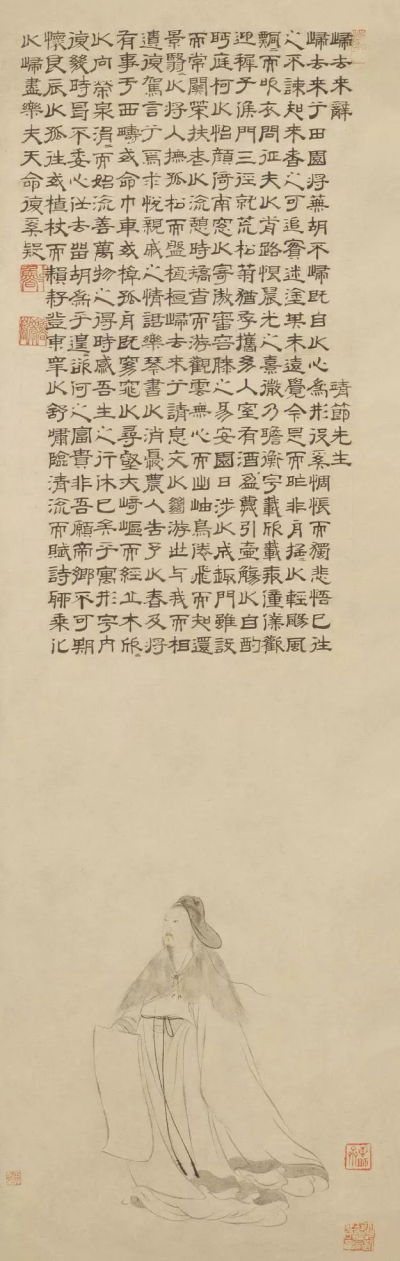 歸去来辭 靖節先生
歸去来兮田園將蕪胡不歸既自以心為形役奚惆悵而獨悲悟已往
之不諫知来者之可追實迷塗其未遠覺今是而昨非舟搖以輕颺風
飄〻而吹衣問征夫以前路恨晨光之熹微乃瞻衡宇載欣載奔僮僕歡
迎稚子候門三徑就荒松菊猶存攜幼入室有酒盈樽引壺觴以自酌
眄庭柯以怡顏倚南窗以寄傲審容膝之易安園日涉以成趣門雖設
而常關策扶老以流憩時矯首而游觀雲無心而出岫鳥倦飛而知還
景翳〻以將入撫孤松而盤桓歸去来兮請息交以絕游世与我而相
遺復駕言兮焉求悅親戚之情話樂琴書以消憂農人告予以春及將
有事于西疇或命巾車或棹孤舟既窈窕以尋壑亦崎嶇而經丘木欣〻
以向榮泉涓〻而始流善萬物之得時感吾生之行休已矣乎寓形宇内
復幾時曷不委心任去留胡為乎遑〻欲何之富貴非吾願帝鄉不可期
懷良辰以孤往或植杖而耘耔登東皋以舒嘯臨清流而賦詩聊乘化
以歸盡樂夫天命復奚疑